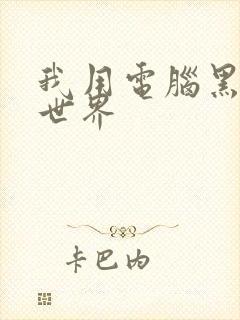 我用電腦黑
世界
卡巴内